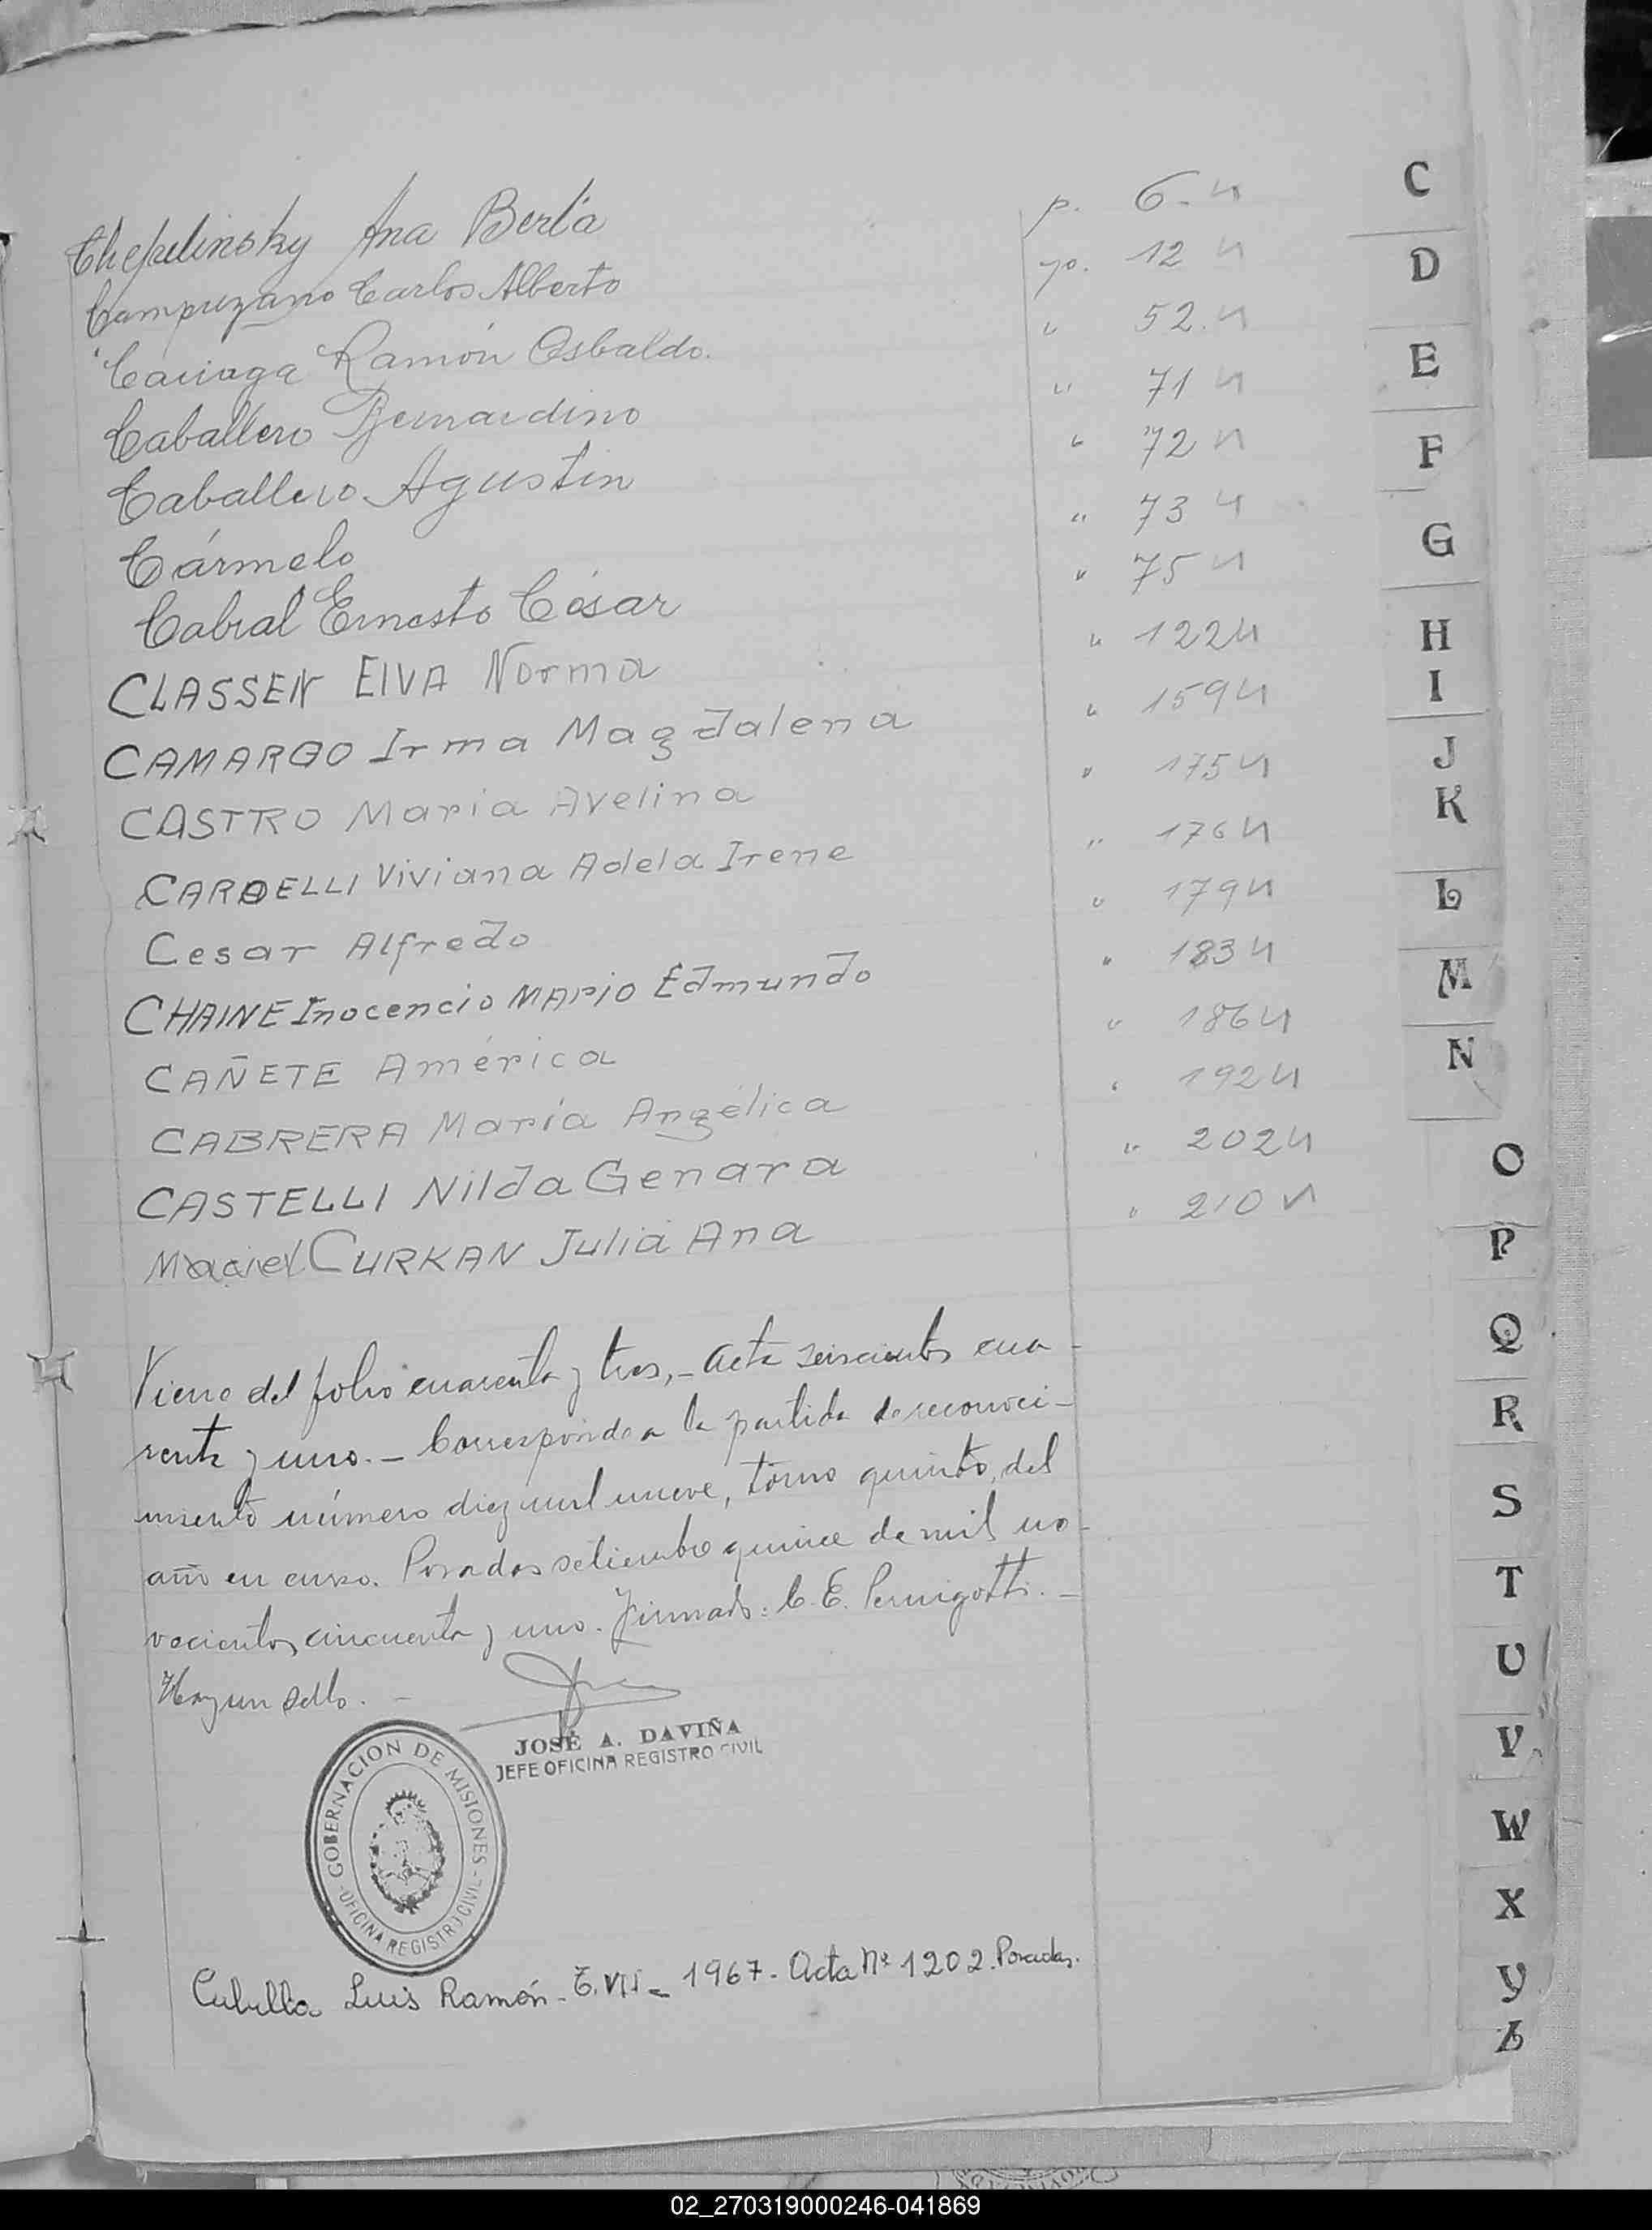 Chepelinsky Ana Berta p. 6.- 4
Campuzano Carlos Alberto p. 12 4
Caciaga Ramón Osbaldo. " 52. 4
Caballero Bernardino " 71 4
Caballero Agustin " 72 4
Cármelo " 73 4
Cabral Ernesto César " 75 4
CLASSEN ElVA Norma " 122 4
CAMARGO Irma Magdalena " 159 4
CASTRO Maria Avelina " 175 4
CARDELLI Viviana Adela Irene " 176 4
Cesar Alfredo " 179 4
CHAINE Inocencio MARIO Edmundo " 183 4
CAÑETE América " 186 4
CABRERA María Angélica " 192 4
CASTELLI Nilda Genara " 202 4
Maciel CURKAN Julia Ana " 210 4
Viene del folio cuarenta y tres,- acta seiscientos cua-
renta y uno.- Corresponde a la partida de reconoci-
miento número diez mil nueve, tomo quinto, del
año en curso. Posadas setiembre quince de mil no-
vecientos cincuenta y uno. Firmado: C. E. Pernigotti.-
Hay un sello.-
JOSÉ A. DAVIÑA
JEFE OFICINA REGISTRO CIVIL
GOBERNACION DE MISIONES
-OFICINA REGISTRO CIVIL-
Cubilla Luis Ramón- T. VII- 1967- Acta Nº 1202. Posadas.
C
D
E
F
G
H
I
J
K
L
M
N
O
P
Q
R
S
T
U
V
W
X
Y
Z
02_270319000246-041869